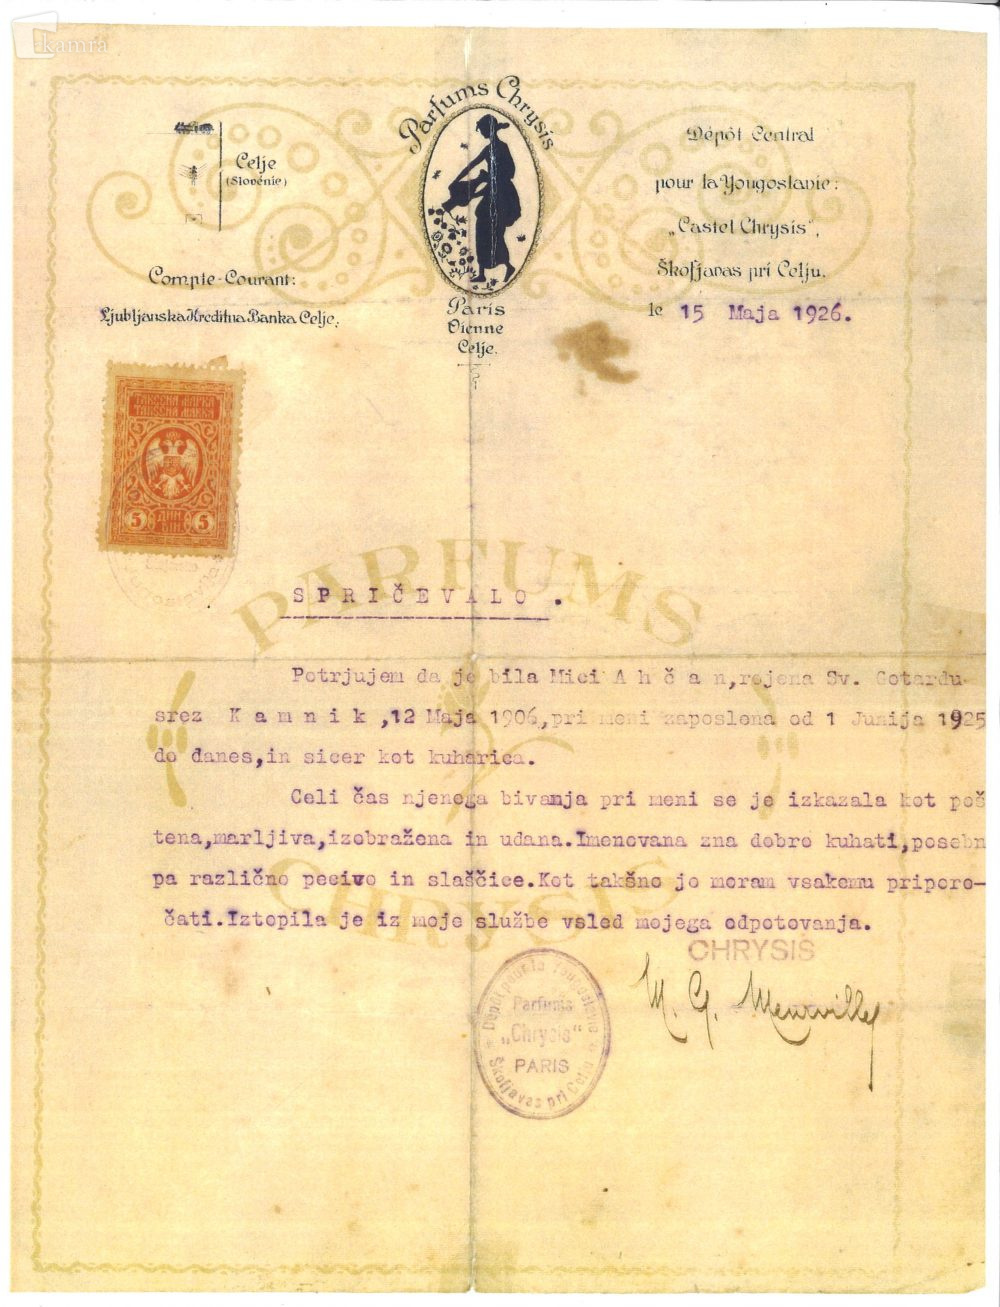 kamra
Parfums Chrysis
Celje
(Slovénie)
Compte-Courant:
Ljubljanska Kreditna Banka Celje.
Paris
Vienne
Celje.
Dépôt Central
pour la Yougoslavie:
„Castel Chrysis",
Škofjavas pri Celju.
le 15 Maja 1926.
ТАКСЕНА МАРКА
TAKSENA MARKA
5 ДИН 5
DIN
PARFUMS
SPRIČEVALO.
Potrjujem da je bila Mici A h č a n,rojena Sv. Gotardu-
srez K a m n i k ,12 Maja 1906,pri meni zaposlena od 1 Junija 1925
do danes,in sicer kot kuharica.
Celi čas njenega bivanja pri meni se je izkazala kot poš
tena,marljiva,izobražena in udana.Imenovana zna dobro kuhati,posebn
pa različno pecivo in slaščice.Kot takšno jo moram vsakemu priporo-
čati.Iztopila je iz moje službe vsled mojega odpotovanja.
CHRYSIS
CHRYSIS
M. G.
Dépôt pour la Yougoslavie
Parfums
„Chrysis"
PARIS
Škofjavas pri Celju